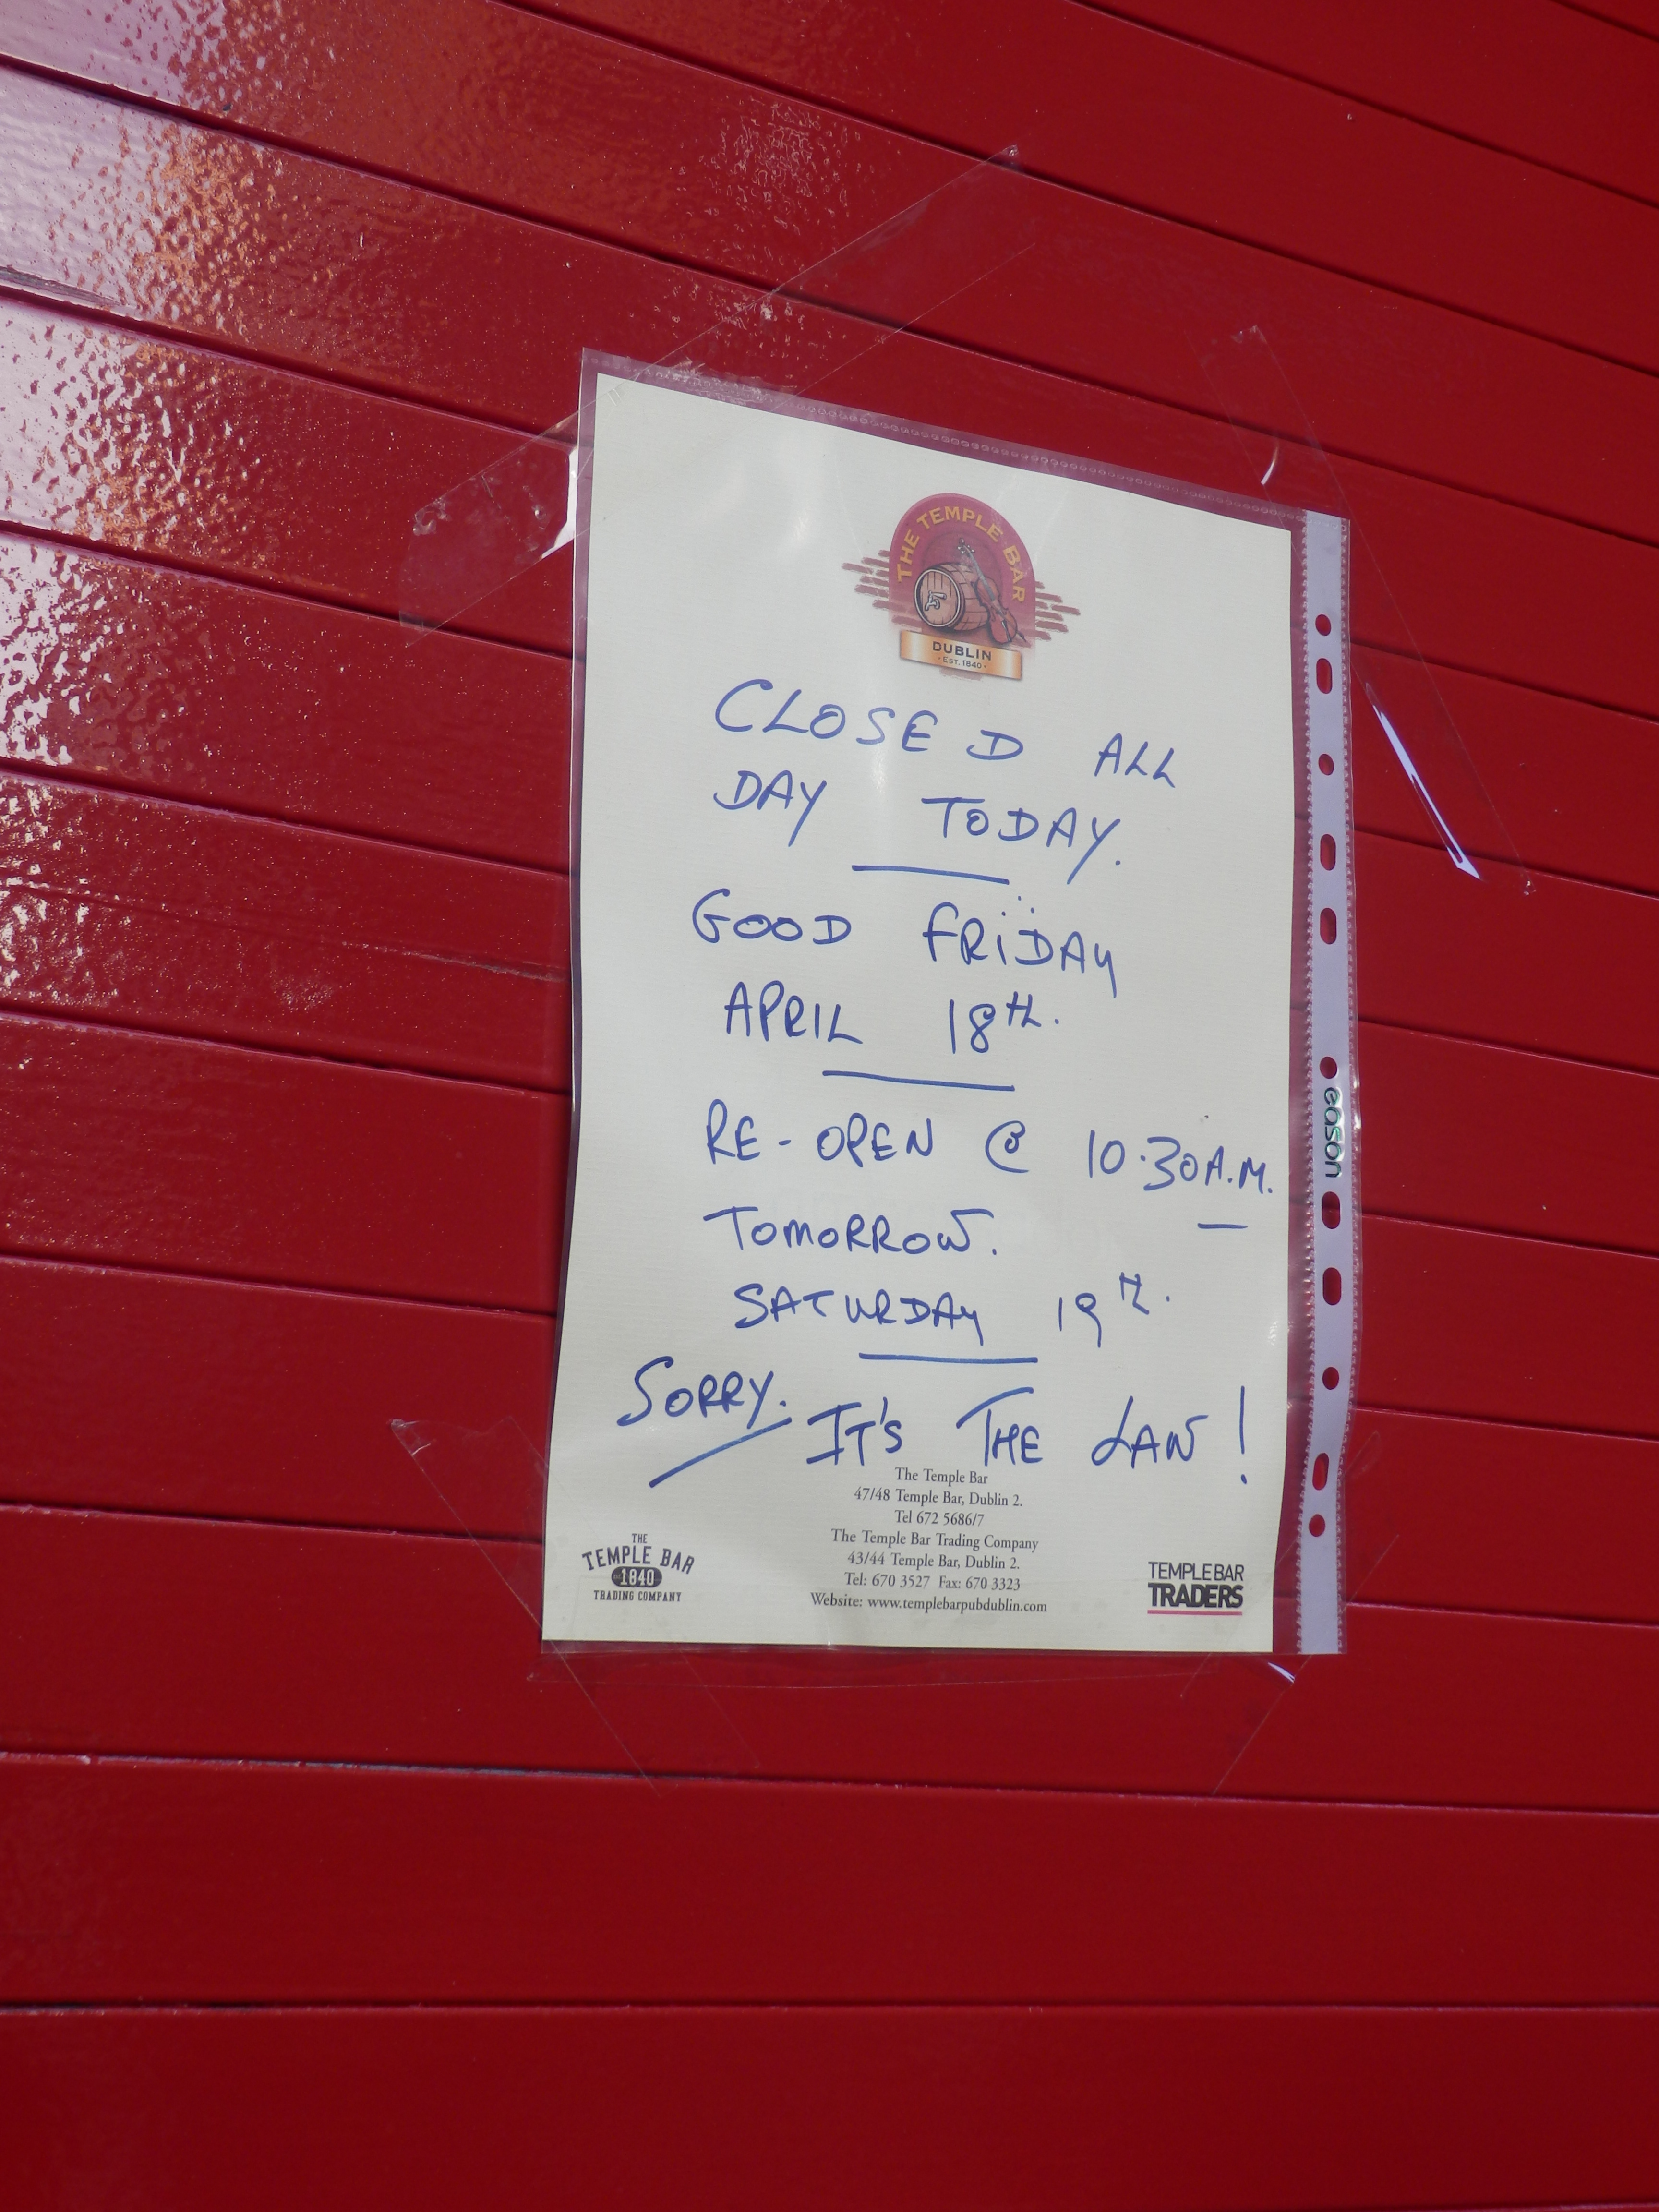 THE TEMPLE BAR
DUBLIN
· EST. 1840 ·
CLOSED ALL
DAY TODAY.
GOOD FRIDAY
APRIL 18TH.
RE-OPEN @ 10.30A.M.
TOMORROW.
SATURDAY 19TH.
SORRY. IT'S THE LAW!
The Temple Bar
47/48 Temple Bar, Dublin 2.
Tel 672 5686/7
The Temple Bar Trading Company
43/44 Temple Bar, Dublin 2.
Tel: 670 3527 Fax: 670 3323
Website: www.templebarpubdublin.com
THE
TEMPLE BAR
1840
TRADING COMPANY
TEMPLE BAR
TRADERS
eason